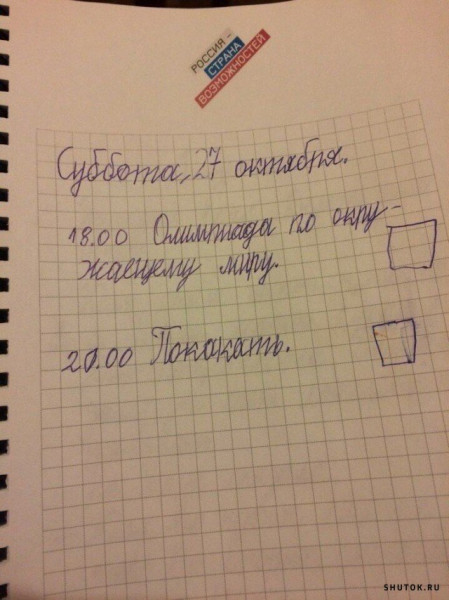 РОССИЯ –
СТРАНА
ВОЗМОЖНОСТЕЙ
Суббота, 27 октября.
18.00 Олимпиада по окру-
жаещему миру.
20.00 Покакать.
SHUTOK.RU